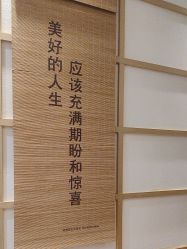 美好的人生
应该充满期盼和惊喜